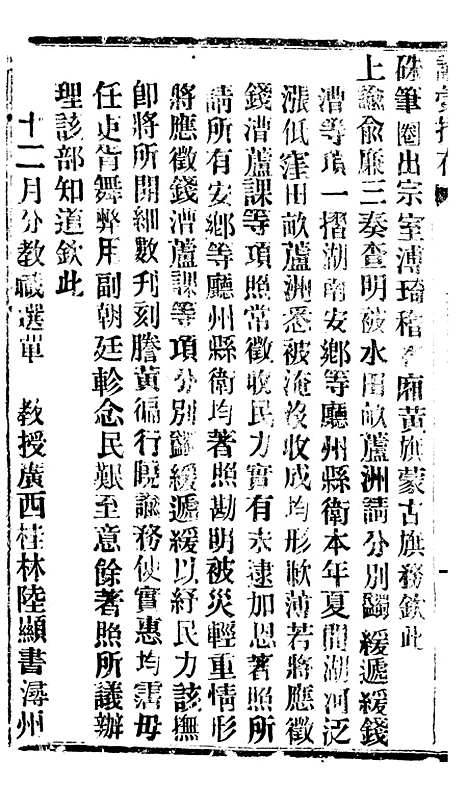 硃筆圈出宗室溥琦稽廂黃旗蒙古旗務欽此
上諭俞廉三奏查明被水田畝蘆洲請分別蠲緩遞緩錢
漕等項一摺湖南安鄉等廳州縣衛本年夏間湖河泛
漲低窪田畝蘆洲悉被淹沒收成均形歉薄若將應徵
錢漕蘆課等項照常徵收民力實有未逮加恩著照所
請所有安鄉等廳州縣衛均著照勘明被災輕重情形
將應徵錢漕蘆課等項分別蠲緩遞緩以紓民力該撫
卽將所開細數刋刻謄黃徧行曉諭務使實惠均霑毋
任吏胥舞弊用副朝廷軫念民艱至意餘著照所議辦
理該部知道欽此
十二月分教職選單 教授廣西桂林陸顯書潯州